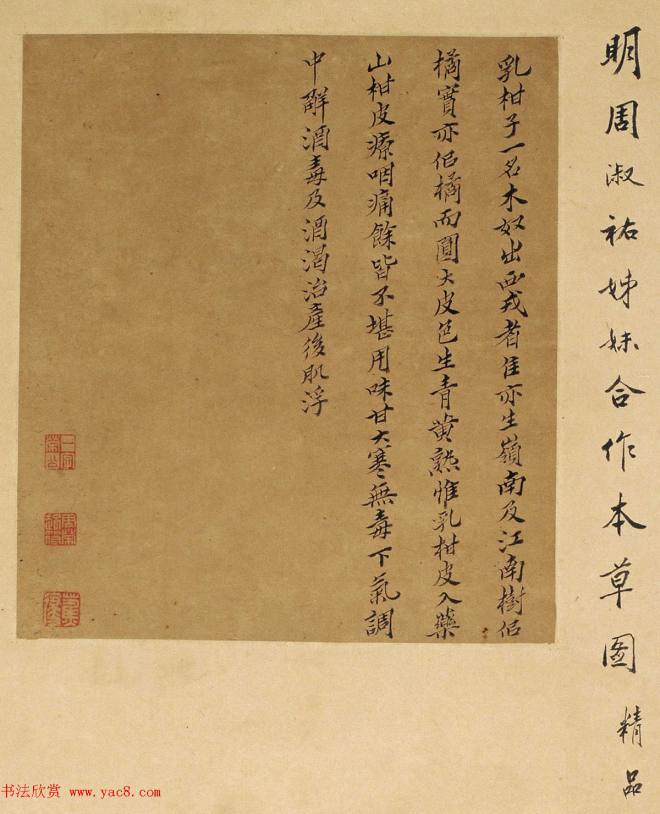 明周淑祐姊妹合作本草图 精品
乳柑子一名木奴出西戎者佳亦生嶺南及江南樹佀
橘實亦佀橘而圓大皮色生青黄熟惟乳柑皮入藥
山柑皮療咽痛餘皆不堪用味甘大寒無毒下氣調
中解酒毒及酒渴治產後肌浮
书法欣赏 www.yac8.com